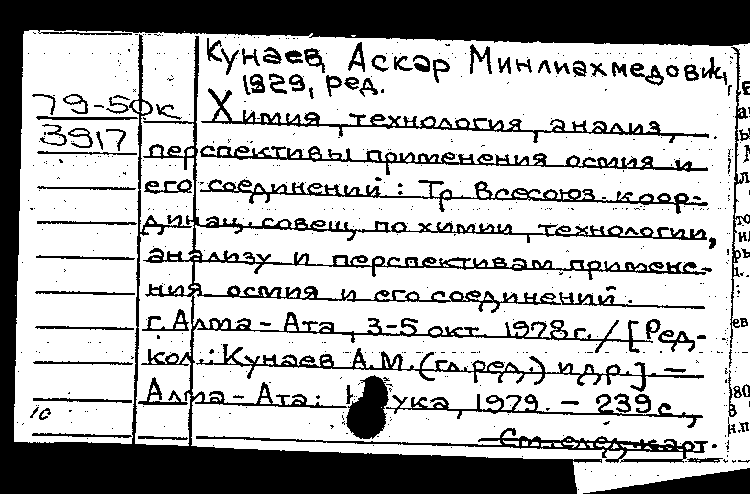 Кунаев, Аскар Минлиахмедович,
1929, ред.
79-50к
Химия, технология, анализ,
3917
перспективы применения осмия и
его соединений: Тр Всесоюз. коор-
динац. совещ. по химии, технологии,
анализу и перспективам примене-
ния осмия и его соединений.
г. Алма-Ата, 3-5 окт. 1978г. / [Ред-
кол.: Кунаев А.М. (гл.ред.) и др.]. —
Алма-Ата: Наука, 1979. - 239с.,
10
См. след. карт.